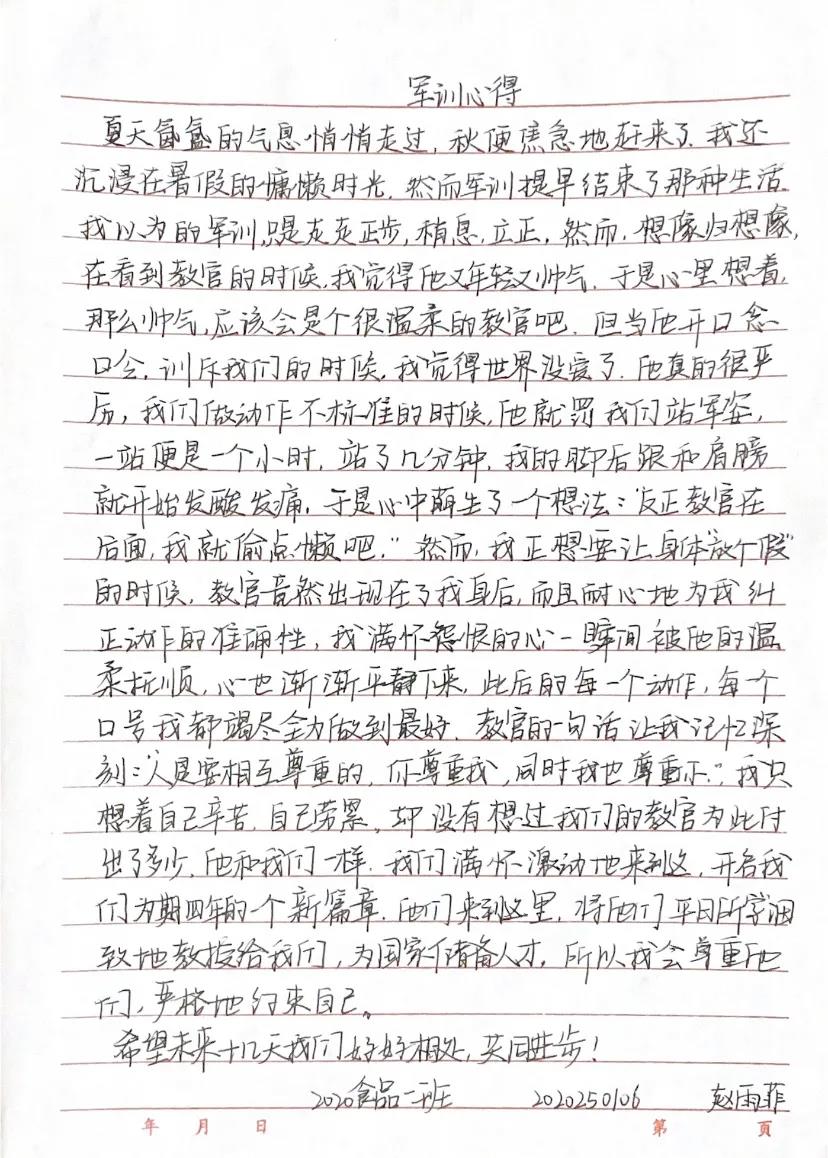 军训心得
夏天氤氲的气息悄悄走过，秋便焦急地赶来了.我还
沉浸在暑假的慵懒时光.然而军训提早结束了那种生活.
我以为的军训只是走走正步，稍息，立正，然而，想像归想像，
在看到教官的时候，我觉得他又年轻又帅气.于是心里想着，
那么帅气，应该会是个很温柔的教官吧.但当他开口念
口令，训斥我们的时候，我觉得世界没爱了.他真的很严
厉，我们做动作不标准的时候，他就罚我们站军姿，
一站便是一个小时，站了几分钟，我的脚后跟和肩膀
就开始发酸发痛，于是心中萌生了一个想法：“反正教官在
后面，我就偷点懒吧.”然而，我正想要让身体“放个假”
的时候，教官竟然出现在了我身后，而且耐心地为我纠
正动作的准确性，我满怀怨恨的心一瞬间被他的温
柔抚顺，心也渐渐平静下来，此后的每一个动作，每一个
口号我都竭尽全力做到最好.教官的一句话让我记忆深
刻：“人是要相互尊重的，你尊重我，同时我也尊重你.”我只
想着自己辛苦，自己劳累，却没有想过我们的教官为此付
出了多少.他和我们一样.我们满怀激动地来到这，开启我
们为期四年的一个新篇章.他们来到这里，将他们平日所学
致地教授给我们，为国家储备人才，所以我会尊重他
们，严格地约束自己。
希望未来十几天我们好好相处，共同进步！
2020食品二班 2020250106 赵雨菲
年 月 日 第 页